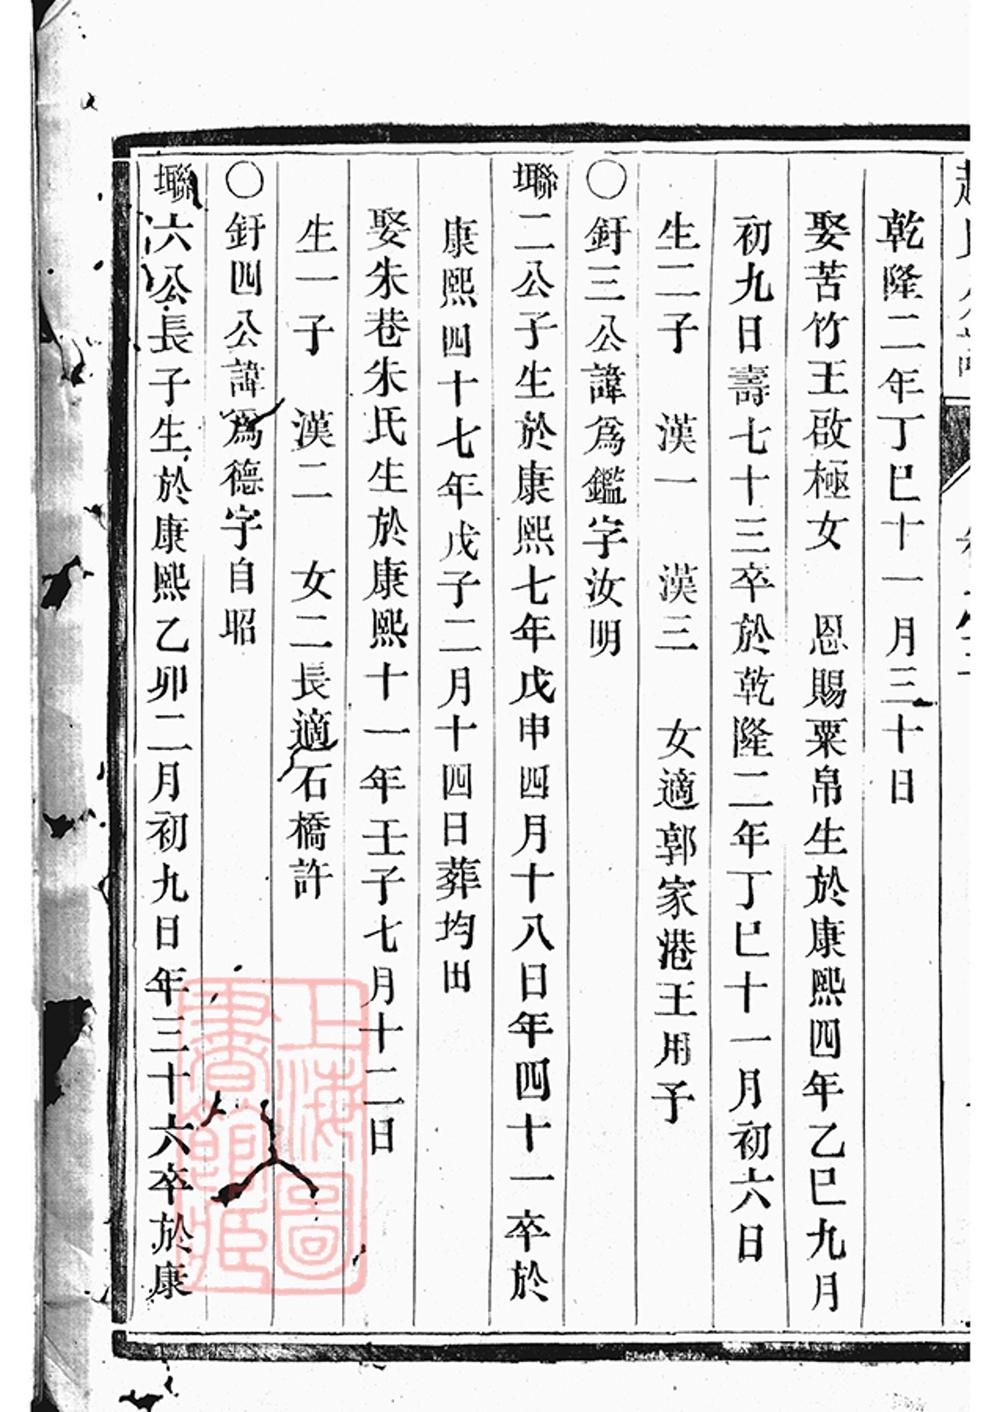 乾隆二年丁巳十一月三十日
娶苦竹王啟極女　恩賜粟帛生於康熙四年乙巳九月
初九日壽七十三卒於乾隆二年丁巳十一月初六日
生二子　漢一　漢三　女適郭家港王用予
〇釪三公諱為鑑字汝明
聯二公子生於康熙七年戊申四月十八日年四十一卒於
康熙四十七年戊子二月十四日葬均田
娶朱巷朱氏生於康熙十一年壬子七月十二日
生一子　漢二　女二長適石橋許
〇釪四公諱為德字自昭
六公長子生於康熙乙卯二月初九日年三十六卒於康
上海圖書館藏